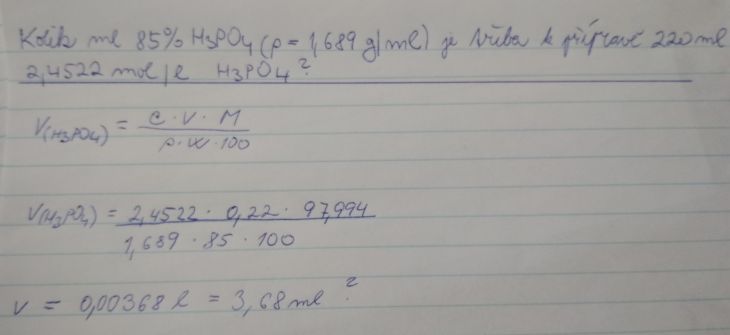 Kolik ml 85% H₃PO₄ (ρ = 1,689 g/ml) je třeba k přípravě 220 ml
2,4522 mol/l H₃PO₄?
V(H₃PO₄) = c · V · M
ρ · w · 100
V(H₃PO₄) = 2,4522 · 0,22 · 97,994
1,689 · 85 · 100
V = 0,00368 l = 3,68 ml ?